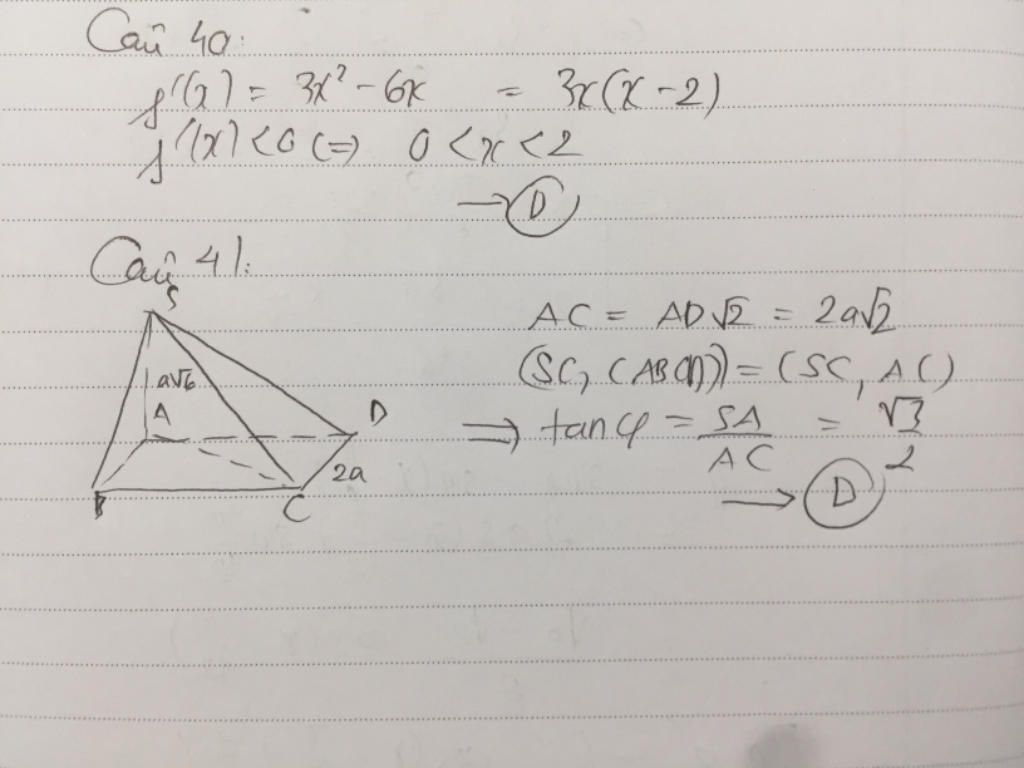 Câu 40:
f'(x) = 3x² - 6x = 3x(x - 2)
f'(x) < 0 (=> 0 < x < 2
→ D
Câu 41:
S
a√6
A
D
2a
B
C
AC = AD√2 = 2a√2
(SC, (ABCD)) = (SC, AC)
=> tanφ = SA/AC = √3/2
→ D